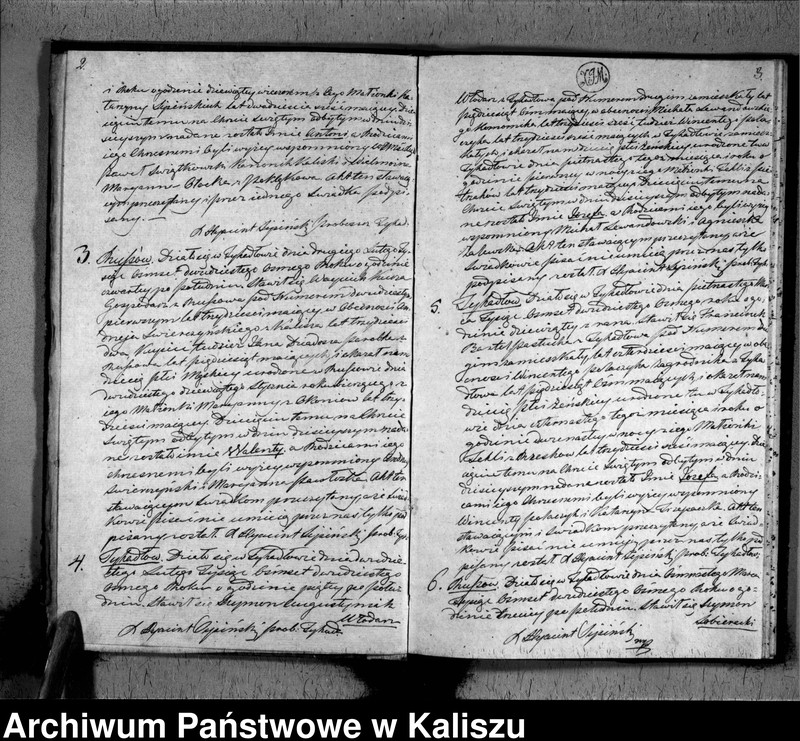 2.
i Roku o godzinie dziewiątey wieczorem z Jego Małżonki Ka-
tarzyny Lipińskich lat dwadzieścia sześć maiącey. Dzie-
cięciu temu na Chrcie Świętym odbytym w dniu dzi-
sieyszym nadane zostało Imie Antoni a Rodzicami
iego Chrzesnemi byli wyżey wspomniony
Paweł Świątkowski Kaliski i
Maryanna z Akt ten stawaią-
cym przeczytany i przez iednego Świadka podpi-
sany.
X Hyacint Lipiński Proboszcz Tykad.
3. Russów. Działo się w Tykadłowie dnia drugiego Lutego Ty-
siąc Osmset dwudziestego Osmego Roku o godzinie
czwartey po południu. Stawił się Woyciech
Gospodarz z Russowa pod Numerem dwudziestym
pierwszym lat trzydzieści maiący w Obecności An-
drzeia Swierczyńskiego z Kalisza lat trzydzieści
dwa i tudzież Jana Dziadora parobka z
Russowa lat pięćdziesiąt maiących i okazał nam
dziecię płci Męskiey urodzone w Russowie dnia
dwudziestego dziewiątego Stycznia roku bieżącego z
iego Małżonki Maryanny z lat trzy-
dzieści maiącey. Dziecięciu temu na Chrcie
Świętym odbytym w dniu dzisieyszym nada-
ne zostało imie Walenty, a Rodzicami iego
chrzesnemi byli wyżey wspomniony Andrzey
Swierczyński i Maryanna Pawłoska. Akt ten
stawaiącym Świadkom przeczytany a że Świad-
kowie pisać nie umieią przez nas tylko pod-
pisany został. X Hyacint Lipiński Prob. Tyk.
4. Tykadłow. Działo się w Tykadłowie dnia dwudzie-
stego Lutego Tysiąc Osmset dwudziestego
Osmego Roku o godzinie piątey po połu-
dniu. Stawił się Szymon Augustyniak
Włodarz
X Hyacint Lipiński Prob. Tykad.
3.
Włodarz z Tykadłowa pod Numerem drugim zamieszkały lat
pięćdziesiąt Osm maiący w obecności Michała Lewandowskie-
go Ekonomika lat trzydzieści sześć tudzież Wincentego Pola-
czyka lat trzydzieści sześć maiących w Tykadłowie zamiesz-
kałych, i okazał nam dziecię płci żeńskiey urodzone tu w
Tykadłowie dnia piętnastego tego miesiąca i roku o
godzinie pierwszey w nocy z iego Małżonki
lat trzydzieści maiącey. Dziecięciu temu na
Chrcie Świętym w dniu dzisieyszym odbytym nada-
ne zostało Imie Jozefa a Rodzicami iego byli wyżey
wspomniony Michał Lewandowski i Agnieszka
Akt ten stawaiącym przeczytany a że
Świadkowie pisać nie umieią przez nas tylko
podpisany został X Hyacint Lipiński Prob. Tyk.
5. Tykadłow. Działo się w Tykadłowie dnia piętnastego Mar-
ca Tysiąc Osmset dwudziestego Osmego roku o go-
dzinie dziewiątey z rana. Stawił się Franciszek
Bartel Pastucha z Tykadłowa pod Numerem dru-
gim zamieszkały, lat czterdzieści maiący w ob-
ecności Wincentego Polaczyka zagrodnika z Tyka-
dłowa lat pięćdziesiąt Osm maiących, i okazał nam
dziecię płci żeńskiey urodzone tu w Tykadło-
wie dnia Osmastego tego miesiąca i roku o
godzinie w nocy z iego Małżonki
Tekli z Orzechow lat trzydzieści sześć maiącey. Dzie-
cięciu temu na Chrcie Świętym odbytym w dniu
dzisieyszym nadane zostało Imie Jozefa, a Rodzi-
cami iego Chrzesnemi byli wyżey wspomniony
Wincenty Polaczyk i Katarzyna Akt ten
stawaiącym i Świadkom przeczytany a że Świad-
kowie pisać nie umieią przez nas tylko pod-
pisany został X Hyacint Lipiński Prob. Tykadłow.
6. Russow. Działo się w Tykadłowie dnia Osmnastego Marca
Tysiąc Osmset dwudziestego Osmego Roku o go-
dzinie trzeciey po południu. Stawił się Szymon
Sobieraski
X Hyacint Lipiński
mp
Archiwum Państwowe w Kaliszu